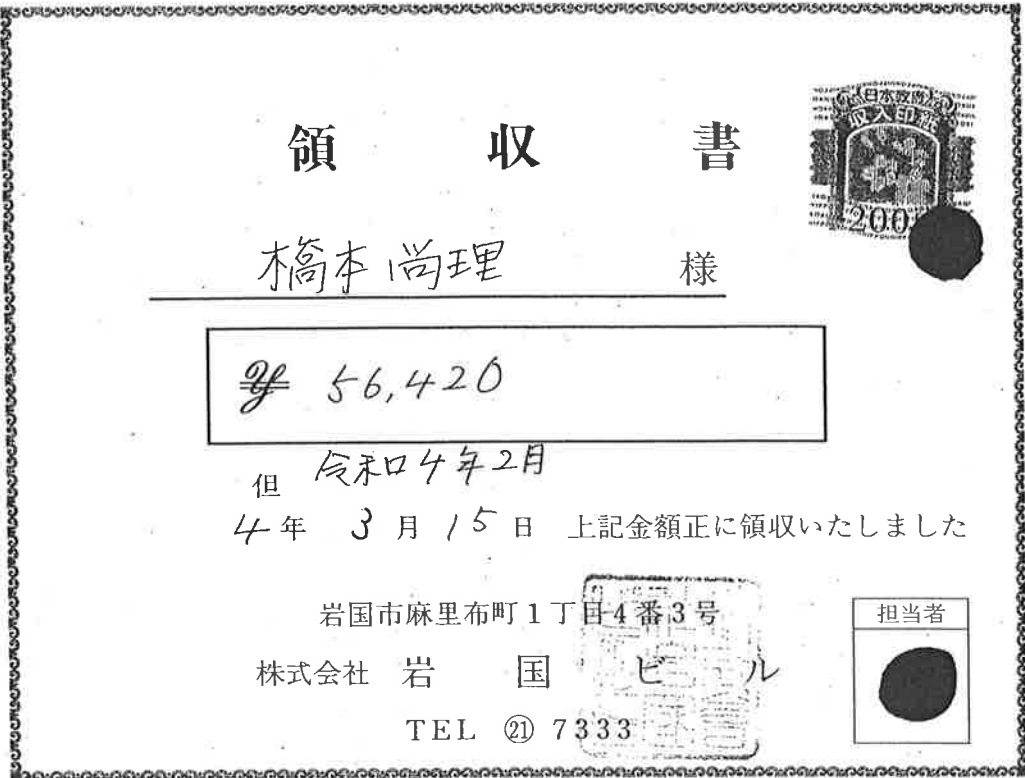 日本政府
収入印紙
200
領 収 書
橋本尚理 様
¥ 56,420
但 令和4年2月
4年 3月 15日 上記金額正に領収いたしました
岩国市麻里布町1丁目4番3号
株式会社 岩国ビル
TEL ㉑ 7333
担当者